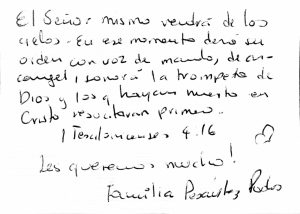 El Señor mismo vendrá de los
cielos. En ese momento dará su
orden con voz de mando, de ar-
cangel, sonará la trompeta de
Dios y los q hayan muerto en
Cristo resucitaran primero.
1 Tesalonicenses 4.16
Les queremos mucho!
Familia